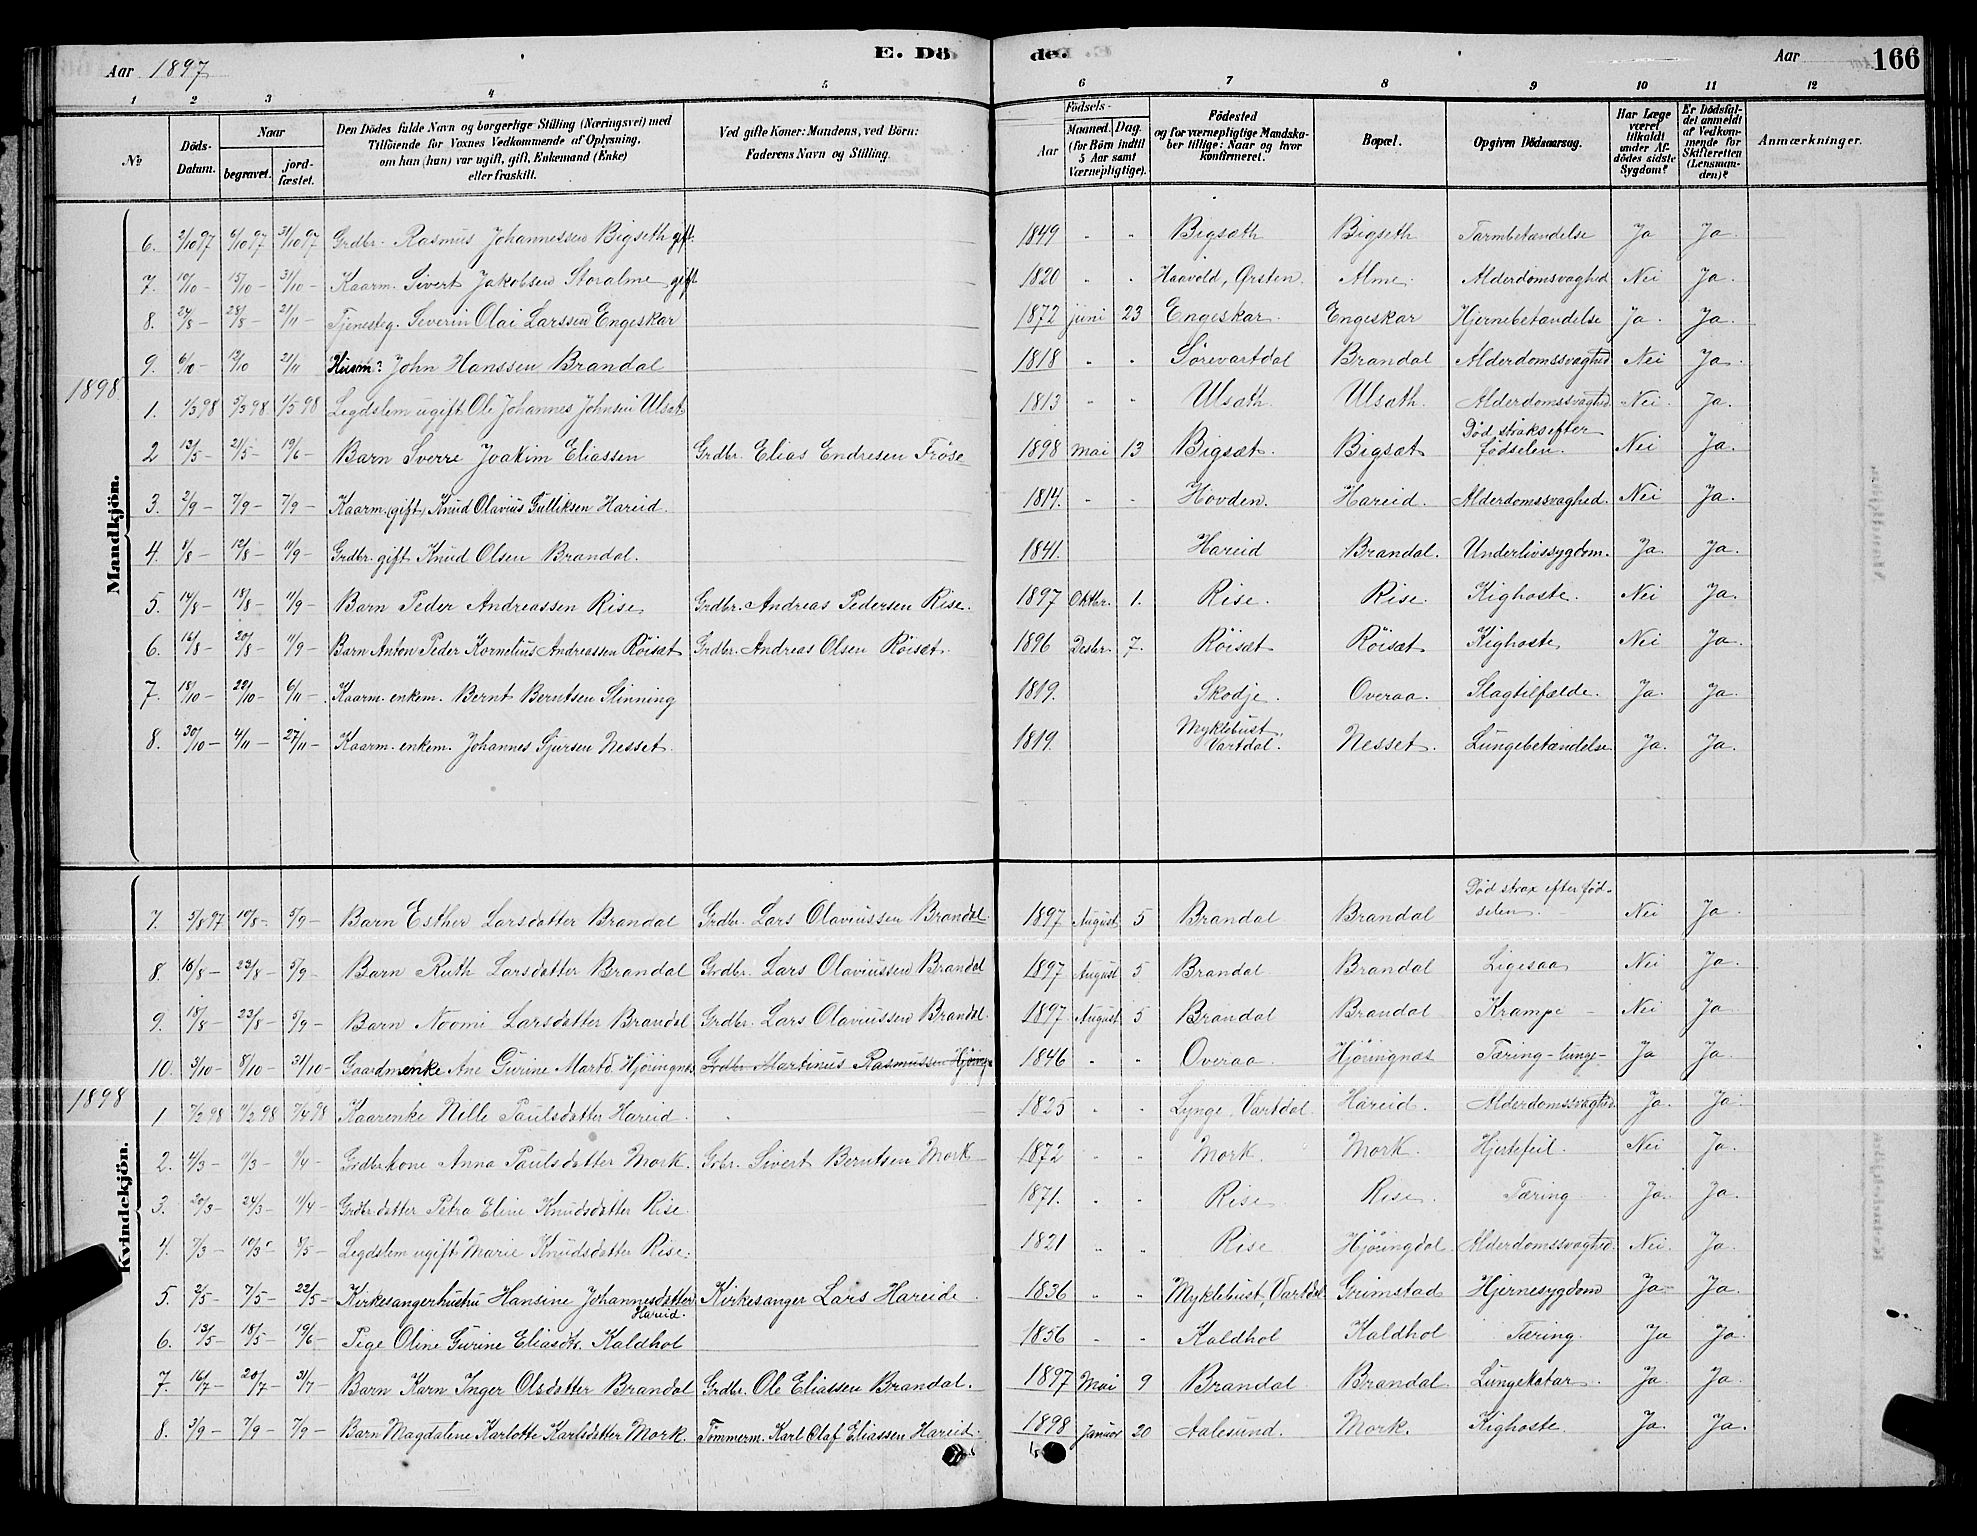 Aar 1897
E. Dö de.
Aar
166
1 2 3 4 5 6 7 8 9 10 11 12
№
Döds-Datum.
Naar
begravet.
jordfæstet.
Den Dödes fulde Navn og borgerlige Stilling (Næringsvei) med
Tilföiende for Voxnes Vedkommende af Oplysning,
om han (hun) var ugift, gift, Enkemand (Enke)
eller fraskilt.
Ved gifte Koner: Mandens, ved Börn:
Faderens Navn og Stilling.
Födsels-
Aar
Maaned. Dag.
(for Börn indtil
5 Aar samt
Værnepligtige).
Födested
og for værnepligtige Mandskaber tillige: Naar og hvor
konfirmeret.
Bopæl.
Opgiven Dödsaarsag.
Har Læge
været
tilkaldt
under Afdödes sidste
Sygdom?
Er Dödsfaldet anmeldt
af Vedkommende for
Skifteretten
(Lensmanden)?
Anmærkninger.
Mandkjön.
6. 2/10 97 6/10 97 31/10 97 Grdbr. Rasmus Johannessen Bigseth gift. 1849 " " Bigsæth Bigseth Tarmbetændelse Ja Ja.
7. 10/10 – 15/10 – 31/10 – Kaarm. Sivert Jakobsen Storalme gift 1820 " " Haavold, Ørsten. Alme. Alderdomsvaghed Nei Ja.
8. 24/8 – 28/8 – 21/11 – Tjenesteg. Severin Olai Larssen Engeskar 1872 juni 23 Engeskar. Engeskar Hjernebetændelse Ja. Ja.
9. 6/10 – 12/10 21/11 Husm? John Hanssen Brandal 1818 " " Sörevartdal Brandal Alderdomssvaghed Nei Ja.
1898
1. 1/3 98 5/3 98 1/5 98 Legdslem ugift Ole Johannes Johnsen Ulsæt 1813 " " Ulsæth. Ulsæth. Alderdomssvaghed Nei. Ja.
2 13/5 – 21/5 – 19/6 – Barn Sverre Joakim Eliassen Grdbr. Elias Endresen Fröse 1898 Mai 13 Bigsæt. Bigsæt Död straks efter fødselen. Nei Ja.
3. 2/9 – 7/9 – 7/9 – Kaarm. (gift) Knud Olavius Gulliksen Hareid. 1814. " " Hovden. Hareid. Alderdomssvaghed. Nei Ja.
4. 12/8 – 11/9 – Grdbr. gift Knud Olsen Brandal. 1841. Hareid Brandal. Underlivssygdom. Ja. Ja.
5. 14/8 – 18/8 – 11/9 – Barn Peder Andreassen Rise Grdbr. Andreas Pedersen Rise. 1897 Oktbr. 1. Rise. Rise. Kighoste. Nei Ja.
6. 16/8 – 20/8 – 11/9 – Barn Anton Peder Kornelius Andreassen Röisæt Grdbr. Andreas Olsen Röisæt. 1896 Desbr. 7. Röisæt Röisæt Kighoste Nei Ja.
7. 18/10 – 22/10 – 6/11 – Kaarm. enkem. Bernt Berntsen Slinning 1819. Skodje. Overaa. Slagtilfælde. Ja. Ja.
8. 30/10 – 4/11 – 27/11 – Kaarm. enkem. Johannes Sjursen Nesset. 1819. Myklebust Vartdal. Nesset. Lungebetændelse Ja. Ja.
Kvindekjön.
7. 5/8 97 10/8 – 5/9 – Barn Esther Larsdatter Brandal Grdbr. Lars Olaviussen Brandal. 1897 August 5 Brandal Brandal Död strax efter fødselen. Nei Ja.
8. 16/8 – 23/8 – 5/9 – Barn Ruth Larsdatter Brandal Grdbr. Lars Olaviussen Brandal 1897 August 5 Brandal Brandal Ligesaa Nei Ja.
9. 18/8 – 23/8 – 5/9 – Barn Noomi Larsdatter Brandal Grdbr. Lars Olaviussen Brandal. 1897 August 5 Brandal Brandal Krampe – Nei Ja.
10. 3/10 – 8/10 – 31/10 – Gaardmenke Ane Gurine Martd. Hjöringnes. Grdbr. Martinus Rasmussen Hjöringn 1846 " " Overaa. Hjöringnæs Tæring – lunge – Ja Ja.
1898
1 7/2 98 11/2 98 7/4 98 Kaarenke Nille Paulsdatter Hareid. 1825 " " Lynge, Vartdal Hareid. Alderdomssvaghed Ja. Ja.
2. 4/3 – 11/3 – 11/4 – Grdbrkone Anna Paulsdatter Mork. Grbr. Sivert Berntsen Mork 1872 " " Mork. Mork. Hjertefeil. Nei Ja.
3. 20/3 – 24/3 – 11/4 – Grdbrdatter Petra Eline Knudsdatter Rise. 1871. " " Rise. Rise. Tæring Ja. Ja.
4. 7/3 – 10/3 – 8/5 – Legdslem ugift Marie Knudsdatter Rise. 1821 " " Rise Hjöringdal Alderdomssvaghed. Nei. Ja.
5. 2/5 – 7/5 – 22/5 – Kirkesangerhustru Hansine Johannesdatter Hareid. Kirkesanger Lars Hareide 1836 " " Myklebust, Vartdal Grimstad Hjernesygdom Ja Ja.
6. 13/5 – 18/5 – 19/6 – Pige Oline Gurine Eliasdtr. Kaldhol 1856 " " Kaldhol Kaldhol Tæring. Ja Ja.
7. 16/7 – 20/7 – 31/7 – Barn Karn Inger Olsdatter Brandal Grdbr. Ole Eliassen Brandal. 1897 Mai 9 Brandal Brandal. Lungekatar. Ja. Ja.
8. 3/9 – 7/9 – 7/9 – Barn Magdalene Karlotte Karlsdatter Mork. Tömmerm. Karl Olaf Eliassen Hareid. 1898 Januar 20 Aalesund. Mork. Kighoste. Ja. Ja.